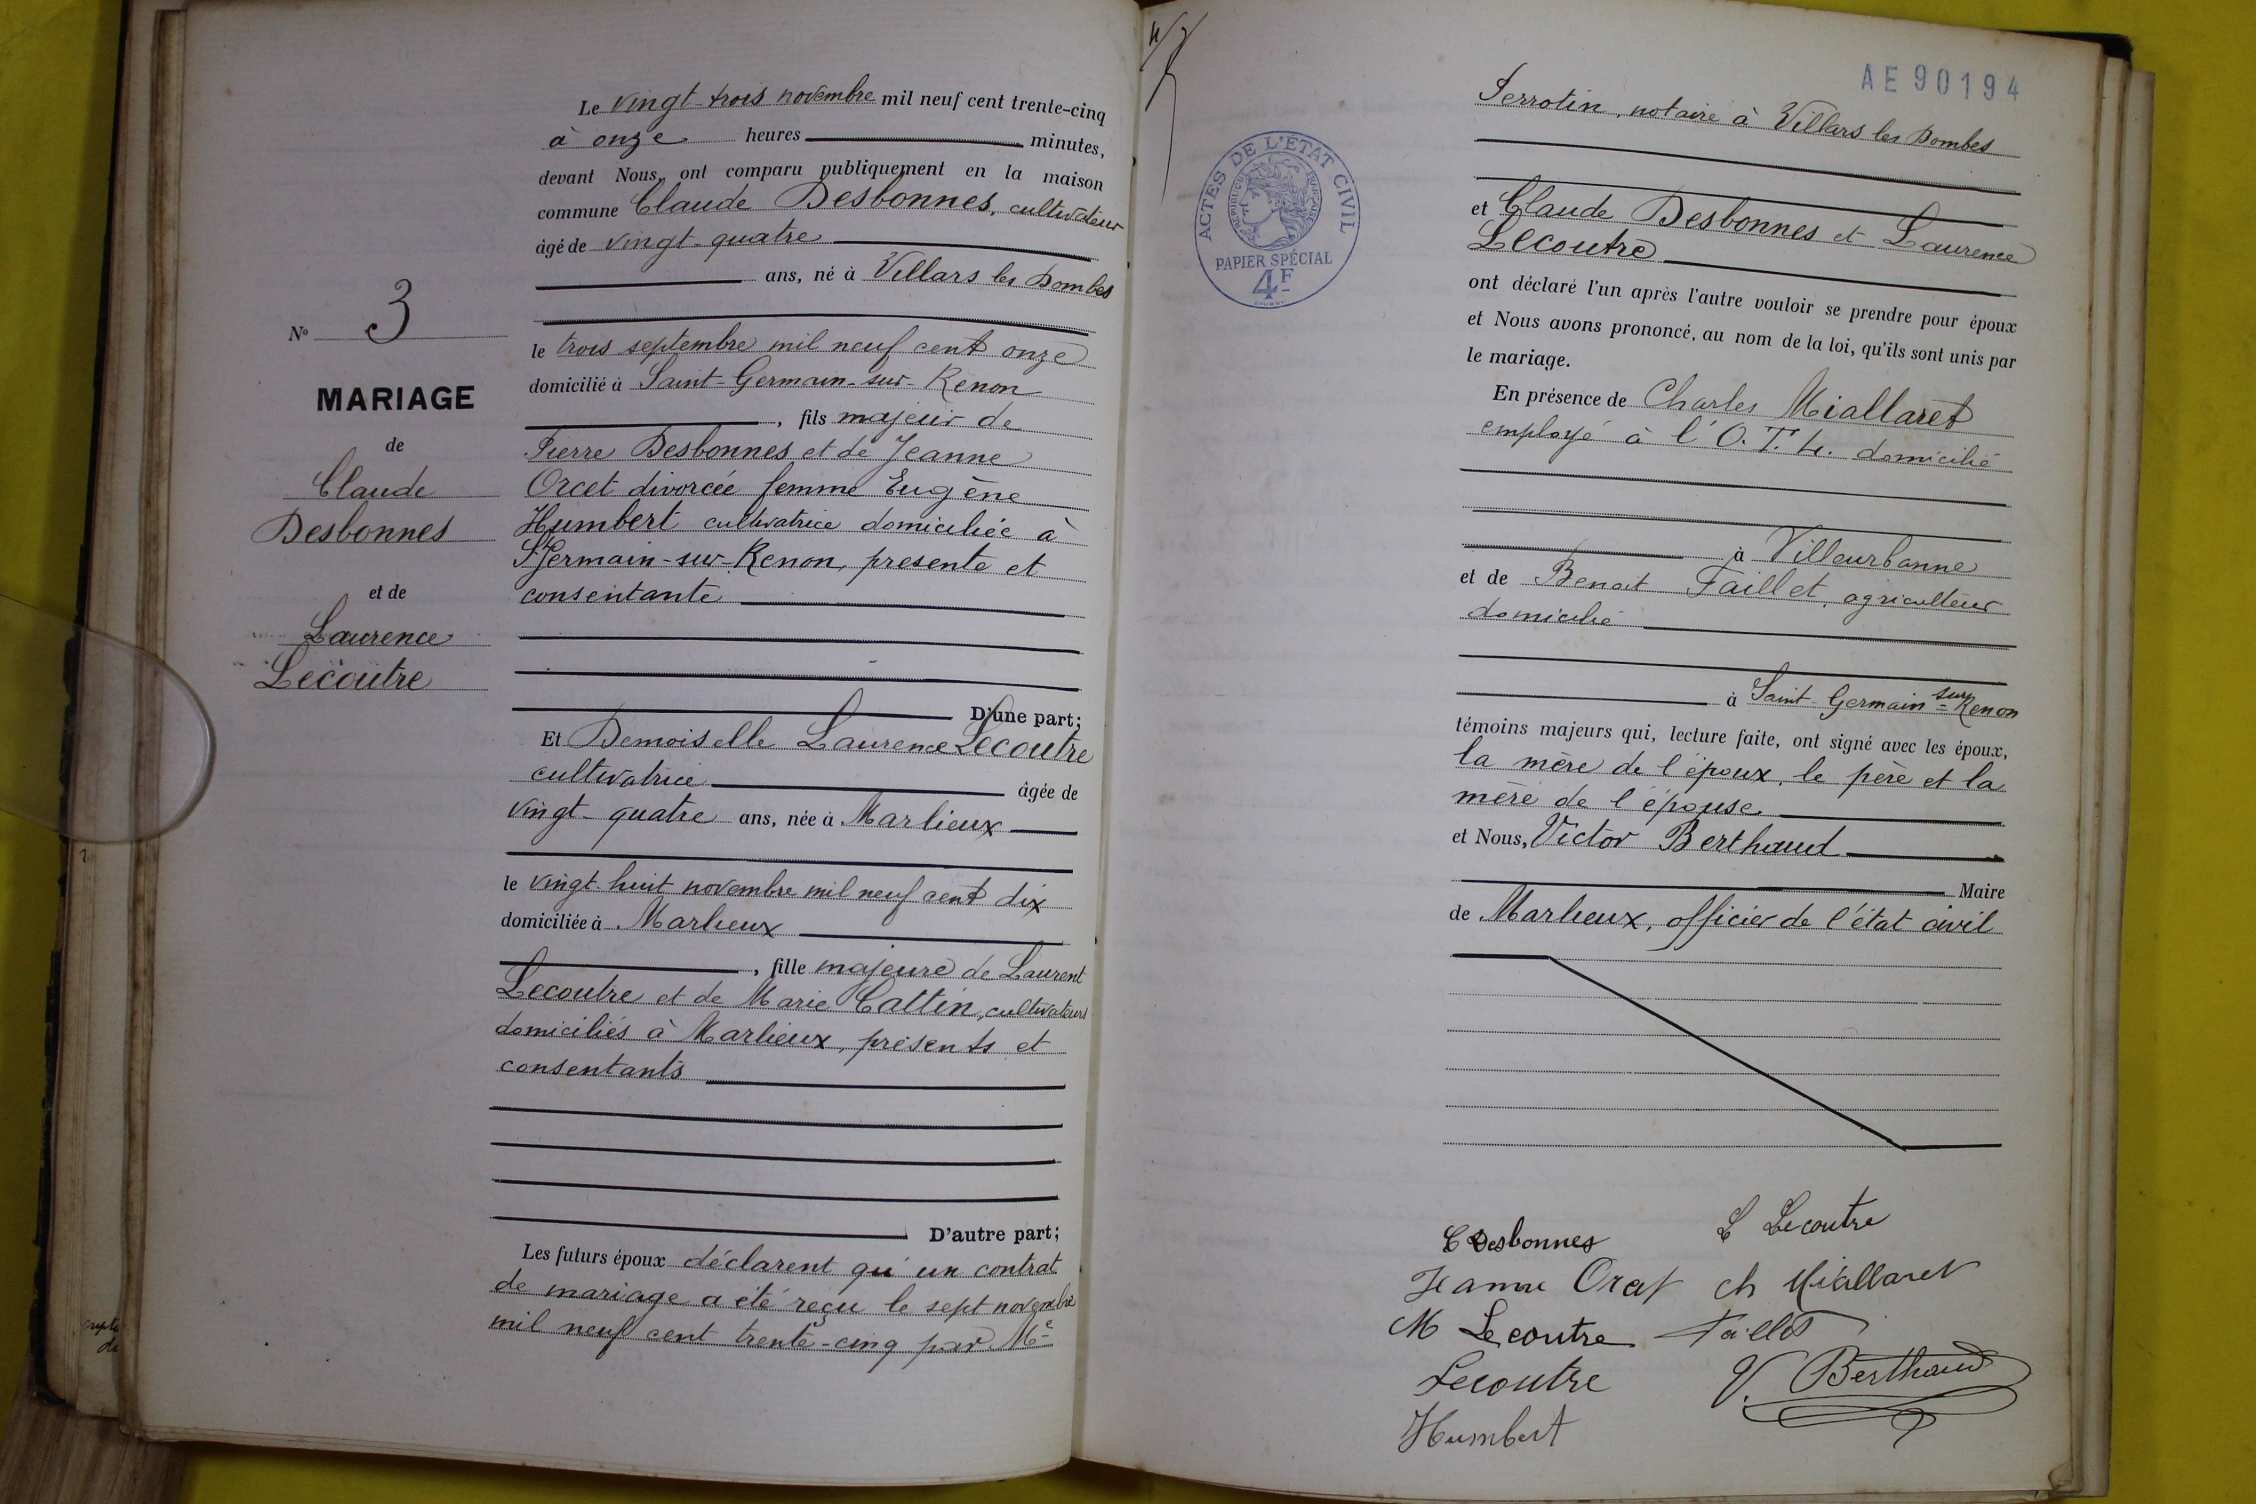 Le vingt-trois novembre mil neuf cent trente-cinq
à onze heures minutes,
devant Nous, ont comparu publiquement en la maison
commune Claude Desbonnes, cultivateur
âgé de vingt-quatre
ans, né à Villars les Dombes
le trois septembre mil neuf cent onze
domicilié à Saint-Germain-sur-Renon
, fils majeur de
Pierre Desbonnes et de Jeanne
Orcet divorcée femme Eugène
Humbert cultivatrice domiciliée à
St Germain-sur-Renon, présente et
consentante
D'une part;
Et Demoiselle Laurence Lecoutre
cultivatrice âgée de
vingt-quatre ans, née à Marlieux
le vingt-huit novembre mil neuf cent dix
domiciliée à Marlieux
, fille majeure de Laurent
Lecoutre et de Marie Cattin, cultivateurs
domiciliés à Marlieux, présents et
consentants
D'autre part;
Les futurs époux déclarent qu'un contrat
de mariage a été reçu le sept novembre
mil neuf cent trente-cinq par Me
N° 3
MARIAGE
de
Claude
Desbonnes
et de
Laurence
Lecoutre
AE90194
ACTES DE L'ÉTAT CIVIL
RÉPUBLIQUE FRANÇAISE
PAPIER SPÉCIAL
4F
Perrotin, notaire à Villars les Dombes
et Claude Desbonnes et Laurence
Lecoutre
ont déclaré l'un après l'autre vouloir se prendre pour époux
et Nous avons prononcé, au nom de la loi, qu'ils sont unis par
le mariage.
En présence de Charles Miallaret
employé à l'O.T.L. domicilié
à Villeurbanne
et de Benoit Faillet, agriculteur
domicilié
à Saint-Germain sur Renon
témoins majeurs qui, lecture faite, ont signé avec les époux,
la mère de l'époux, le père et la
mère de l'épouse
et Nous, Victor Berthaud
Maire
de Marlieux, officier de l'état civil
C Desbonnes
L Lecoutre
Jeanne Orcet
ch Miallaret
M Lecoutre
Faillet
Lecoutre
V. Berthaud
Humbert